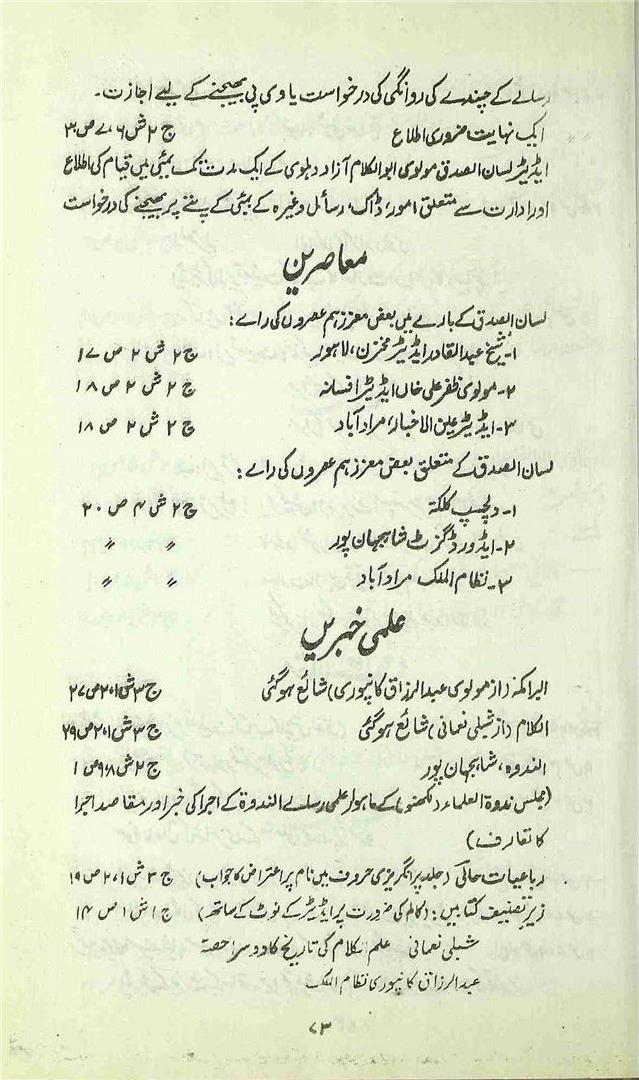 رسالے کے چندے کی روانگی کی درخواست یا وی پی بھیجنے کے لیے اجازت۔
ایک نہایت ضروری اطلاع ج ۲ ش ۶، ۷ ص ۳
ایڈیٹر لسان الصدق مولوی ابوالکلام آزاد دہلوی کے ایک مدت تک بمبئی میں قیام کی اطلاع
اور ادارت سے متعلق امور، ڈاک، رسائل وغیرہ کے بمبئی کے پتے پر بھیجنے کی درخواست
معاصرین
لسان الصدق کے بارے میں بعض معزز ہم عصروں کی رائے:
۱۔ شیخ عبدالقادر ایڈیٹر مخزن، لاہور ج ۲ ش ۲ ص ۱۷
۲۔ مولوی ظفر علی خاں ایڈیٹر افسانہ ج ۲ ش ۲ ص ۱۸
۳۔ ایڈیٹر عین الاخبار، مراد آباد ج ۲ ش ۲ ص ۱۸
لسان الصدق کے متعلق بعض معزز ہم عصروں کی رائے:
۱۔ دلچسپ کلکتہ ج ۲ ش ۴ ص ۲۰
۲۔ ایڈورڈ گزٹ شاہجہان پور 〃 〃
۳۔ نظام الملک مراد آباد 〃 〃
علمی خبریں
البرامکہ (از مولوی عبدالرزاق کانپوری) شائع ہوگئی ج ۳ ش ۱، ۲ ص ۲۷
الکلام (از شبلی نعمانی) شائع ہوگئی ج ۳ ش ۱، ۲ ص ۲۹
الندوہ، شاہجہان پور ج ۲ ش ۸، ۹ ص ۱
(مجلس ندوۃ العلماء (لکھنؤ) کے ماہوار علمی رسالے الندوۃ کے اجرا کی خبر اور مقاصد اجرا
کا تعارف)
رباعیات حالی (جلد پر انگریزی حروف میں نام پر اعتراض کا جواب) ج ۳ ش ۱، ۲ ص ۱۹
زیر تصنیف کتابیں: (کالم کی ضرورت پر ایڈیٹر کے نوٹ کے ساتھ) ج ۱ ش ۱ ص ۱۴
شبلی نعمانی علم الکلام کی تاریخ کا دوسرا حصہ
عبدالرزاق کانپوری نظام الملک
۷۳